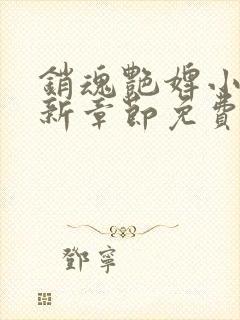 銷魂艷婢小
新章節免費
鄧寧